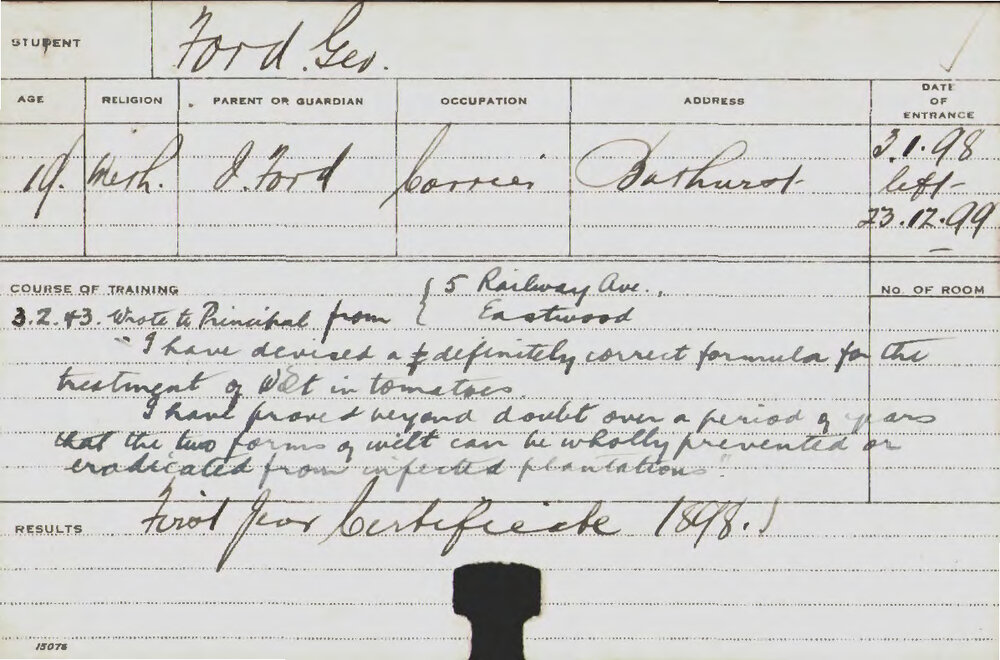 STUDENT
Ford. Geo.
AGE RELIGION PARENT OR GUARDIAN OCCUPATION ADDRESS DATE OF ENTRANCE
19. Meth. J. Ford Carrier Bathurst 3.1.98
left
23.12.99
COURSE OF TRAINING { 5 Railway Ave., No. OF ROOM
3.2.43. Wrote to Principal from { Eastwood
"I have devised a definitely correct formula for the
treatment of Wilt in tomatoes.
I have proved beyond doubt over a period of years
that the two forms of wilt can be wholly prevented or
eradicated from infected plantations"
RESULTS First Year Certificate 1898.
15076